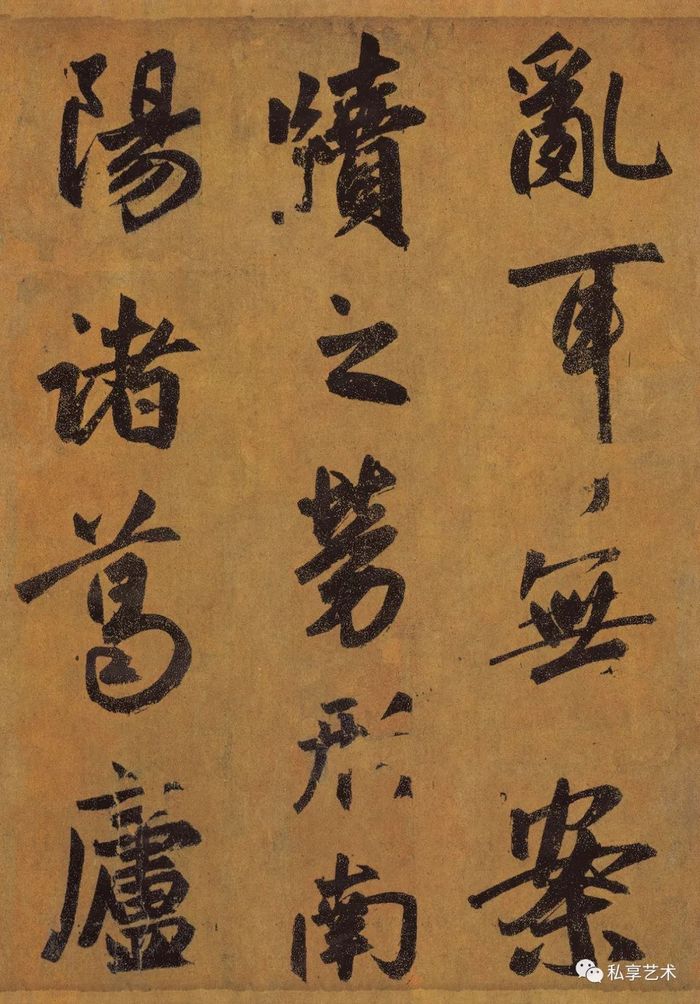 亂耳、無案
牘之勞形南
陽諸葛廬
私享艺术